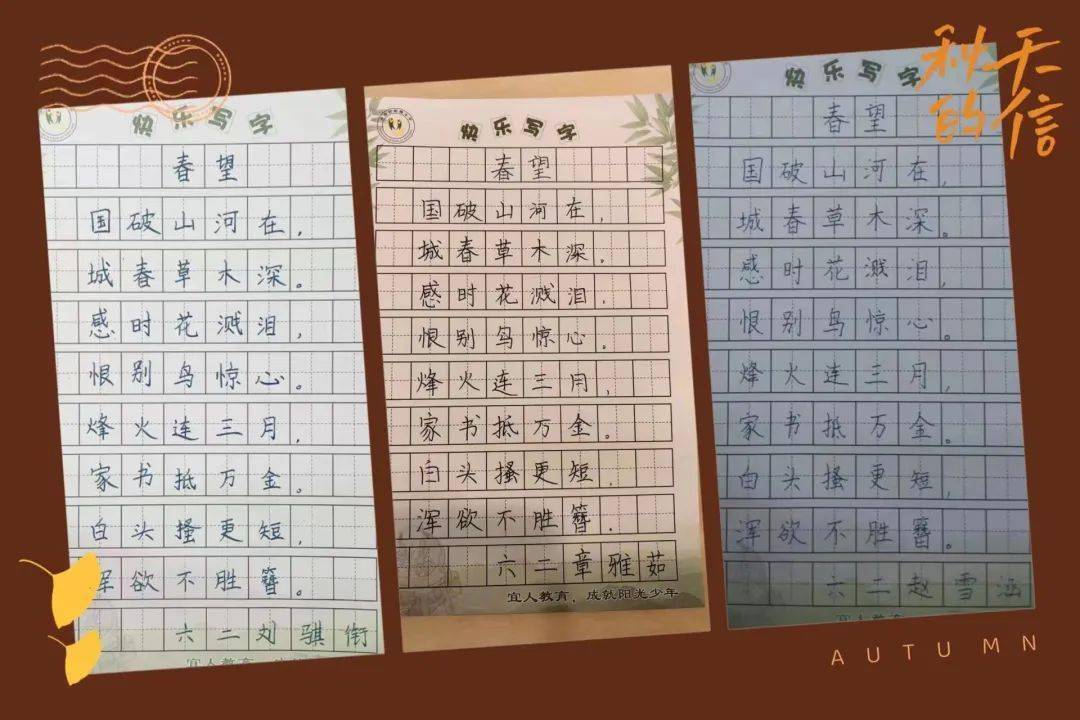 快乐写字
春望
国破山河在，
城春草木深。
感时花溅泪，
恨别鸟惊心。
烽火连三月，
家书抵万金。
白头搔更短，
浑欲不胜簪。
六二刘骐衔
宜人教育
快乐写字
春望
国破山河在，
城春草木深。
感时花溅泪，
恨别鸟惊心。
烽火连三月，
家书抵万金。
白头搔更短，
浑欲不胜簪.
六二章雅茹
宜人教育，成就阳光少年
快乐写字
春望
国破山河在，
城春草木深。
感时花溅泪，
恨别鸟惊心。
烽火连三月，
家书抵万金。
白头搔更短，
浑欲不胜簪。
六二赵雪涵
宜人教育，成就阳光少年
秋天
的信
AUTUMN